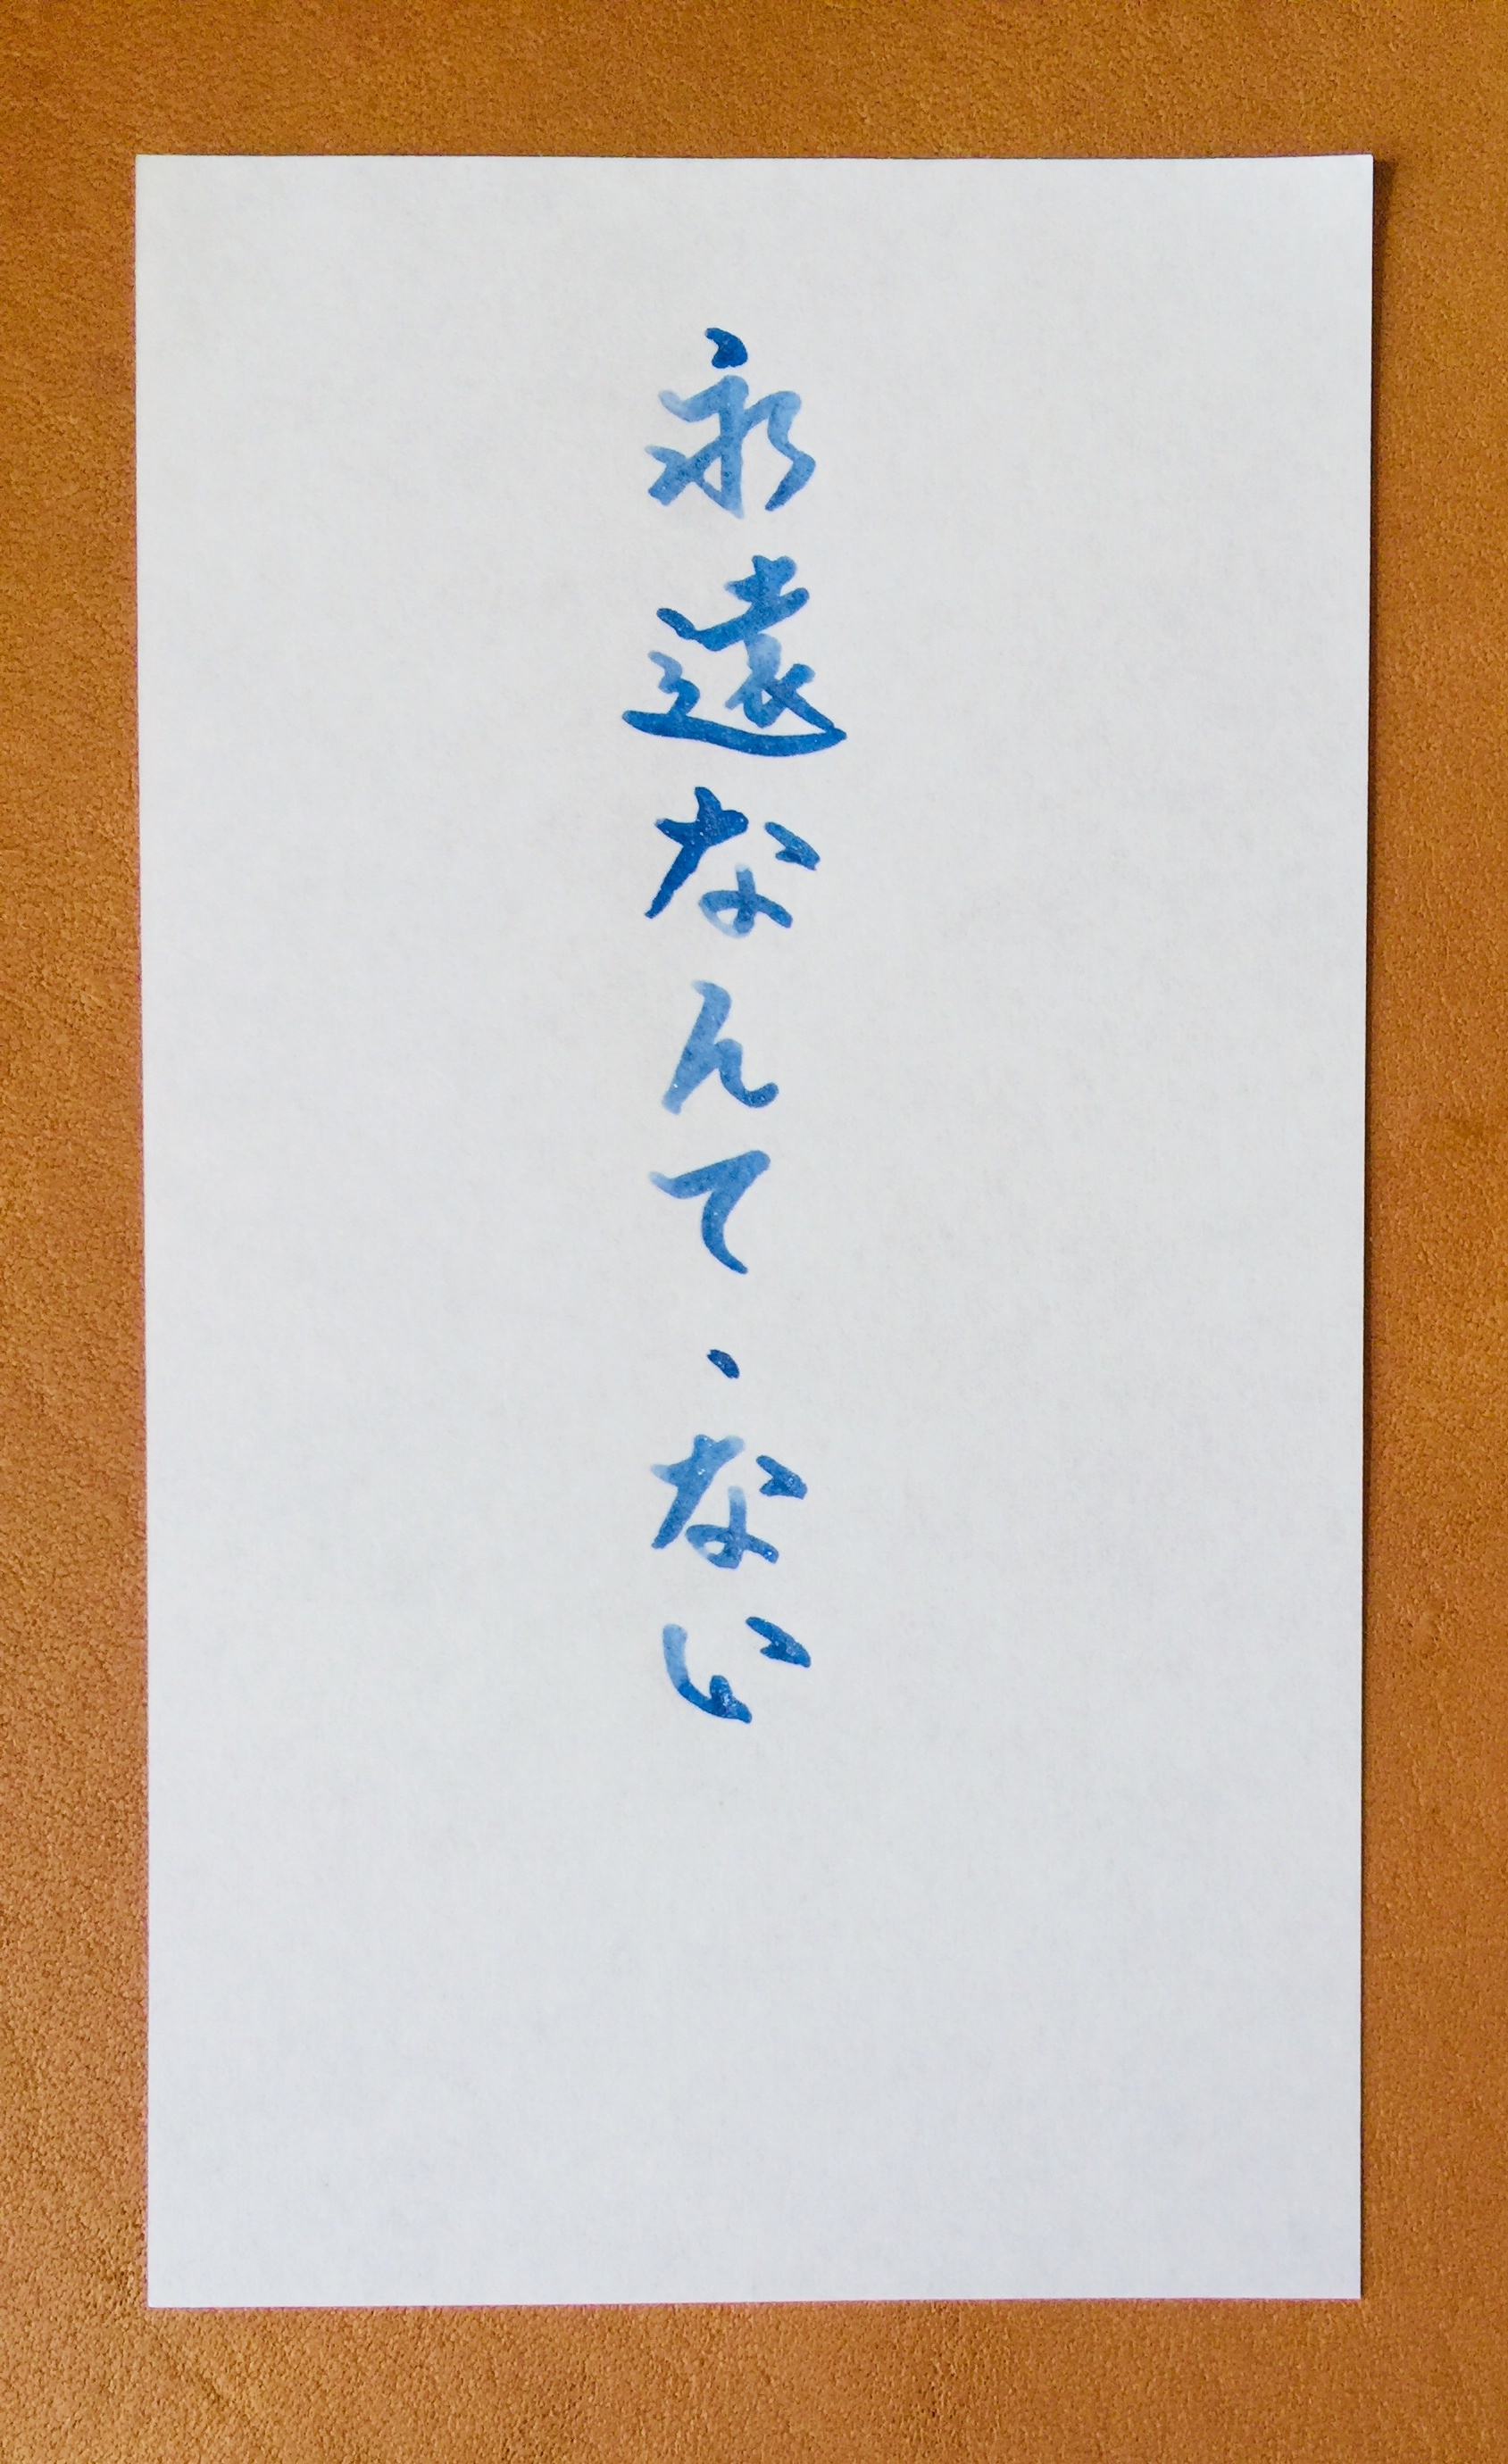 永遠なんて・ない